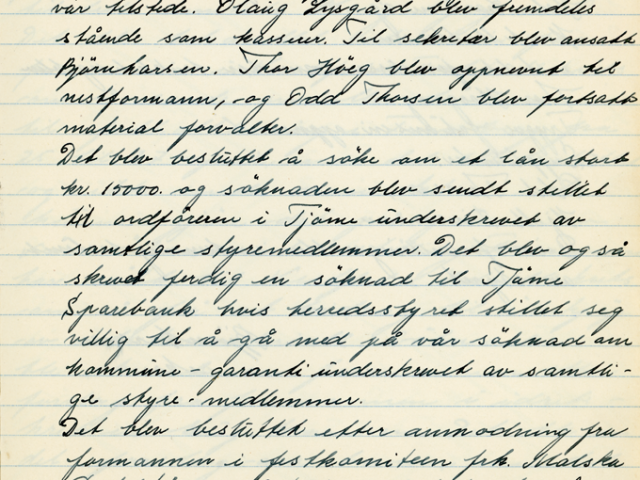 var tilstede. Olaug Lysgård blev fremdeles
stående som kasserer. Til sekretær blev ansatt
Björn Larsen. Thor Höeg blev oppnevnt til
nestformann, - og Odd Thorsen blev fortsatt
material forvalter.
Det blev besluttet å söke om et lån stort
kr. 15000. og söknaden blev sendt stillet
til ordföreren i Tjöme underskrevet av
samtlige styremedlemmer. Det blev også
skrevet ferdig en söknad til Tjöme
Sparebank hvis herredsstyret stillet seg
villig til å gå med på vår söknad om
kommune - garanti underskrevet av samtli-
ge styre - medlemmer.
Det blev besluttet etter anmodning fra
formannen i festkomiteen frk.